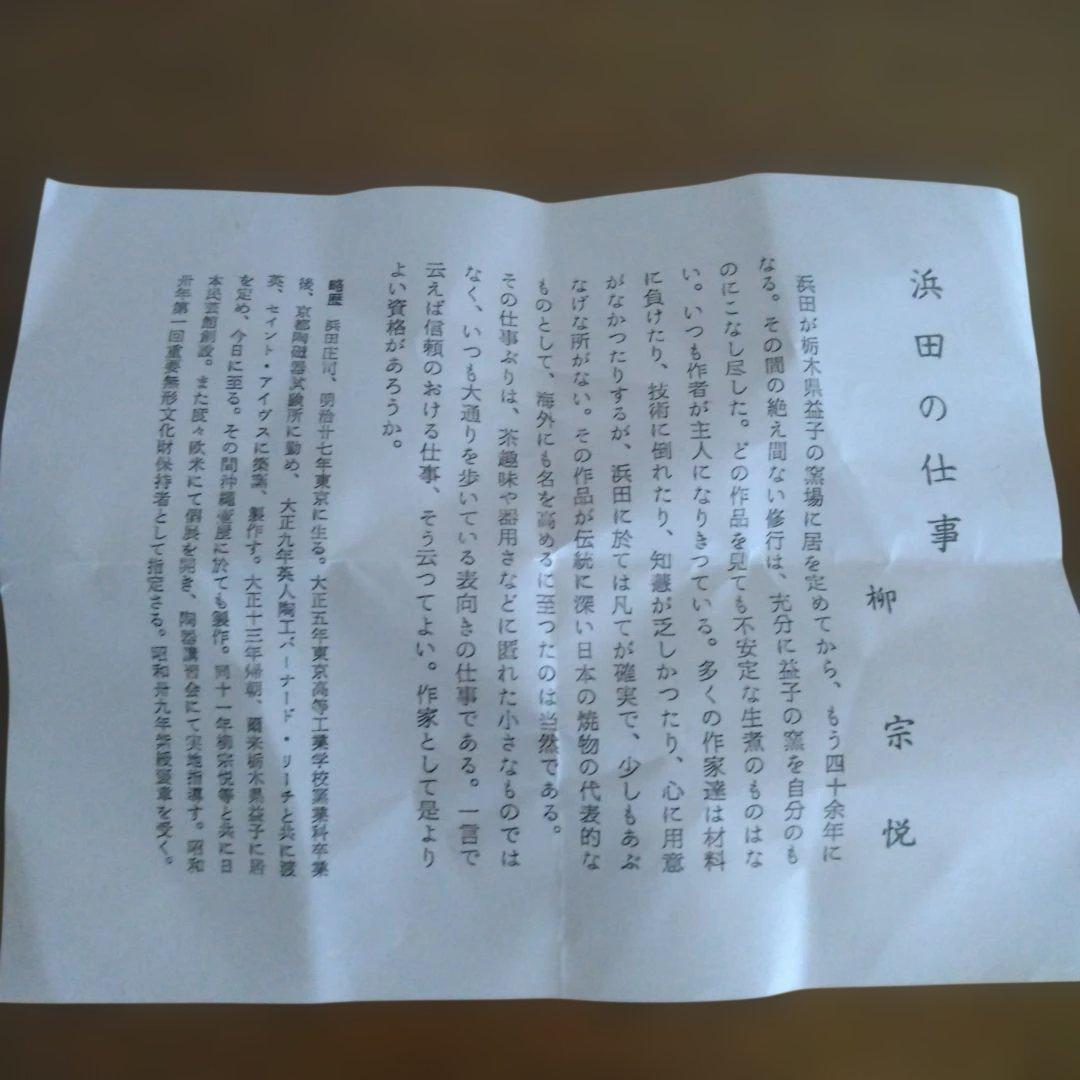 浜田の仕事
柳宗悦
浜田が栃木県益子の窯場に居を定めてから、もう四十余年に
なる。その間の絶え間ない修行は、充分に益子の窯を自分のも
のにこなし尽した。どの作品を見ても不安定な生煮のものはな
い。いつも作者が主人になりきつている。多くの作家達は材料
に負けたり、技術に倒れたり、知慧が乏しかつたり、心に用意
がなかつたりするが、浜田に於ては凡てが確実で、少しもあぶ
なげな所がない。その作品が伝統に深い日本の焼物の代表的な
ものとして、海外にも名を高めるに至つたのは当然である。
その仕事ぶりは、茶趣味や器用さなどに匿れた小さなものでは
なく、いつも大通りを歩いている表向きの仕事である。一言で
云えば信頼のおける仕事、そう云つてよい。作家として是より
よい資格があろうか。
略歴 浜田庄司、明治廿七年東京に生る。大正五年東京高等工業学校窯業科卒業
後、京都陶磁器試験所に勤め、大正九年英人陶工バーナード・リーチと共に渡
英、セイント・アイヴスに築窯、製作す。大正十三年帰朝、爾来栃木県益子に居
を定め、今日に至る。その間沖縄壺屋に於ても製作。同十一年柳宗悦等と共に日
本民芸館創設。また度々欧米にて個展を開き、陶器講習会にて実地指導す。昭和
卅年第一回重要無形文化財保持者として指定さる。昭和卅九年紫綬褒章を受く。